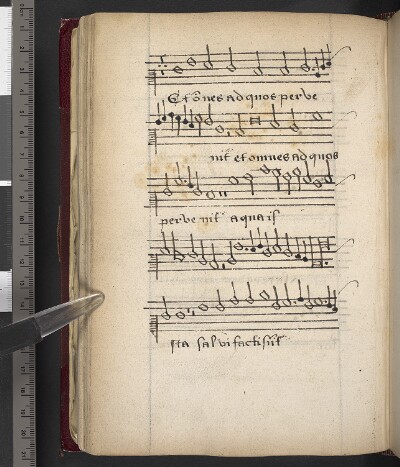 Et oēs ad quos perve
nīt et omnes ad quos
perve nīt aqua is
sta salvi facti sūt